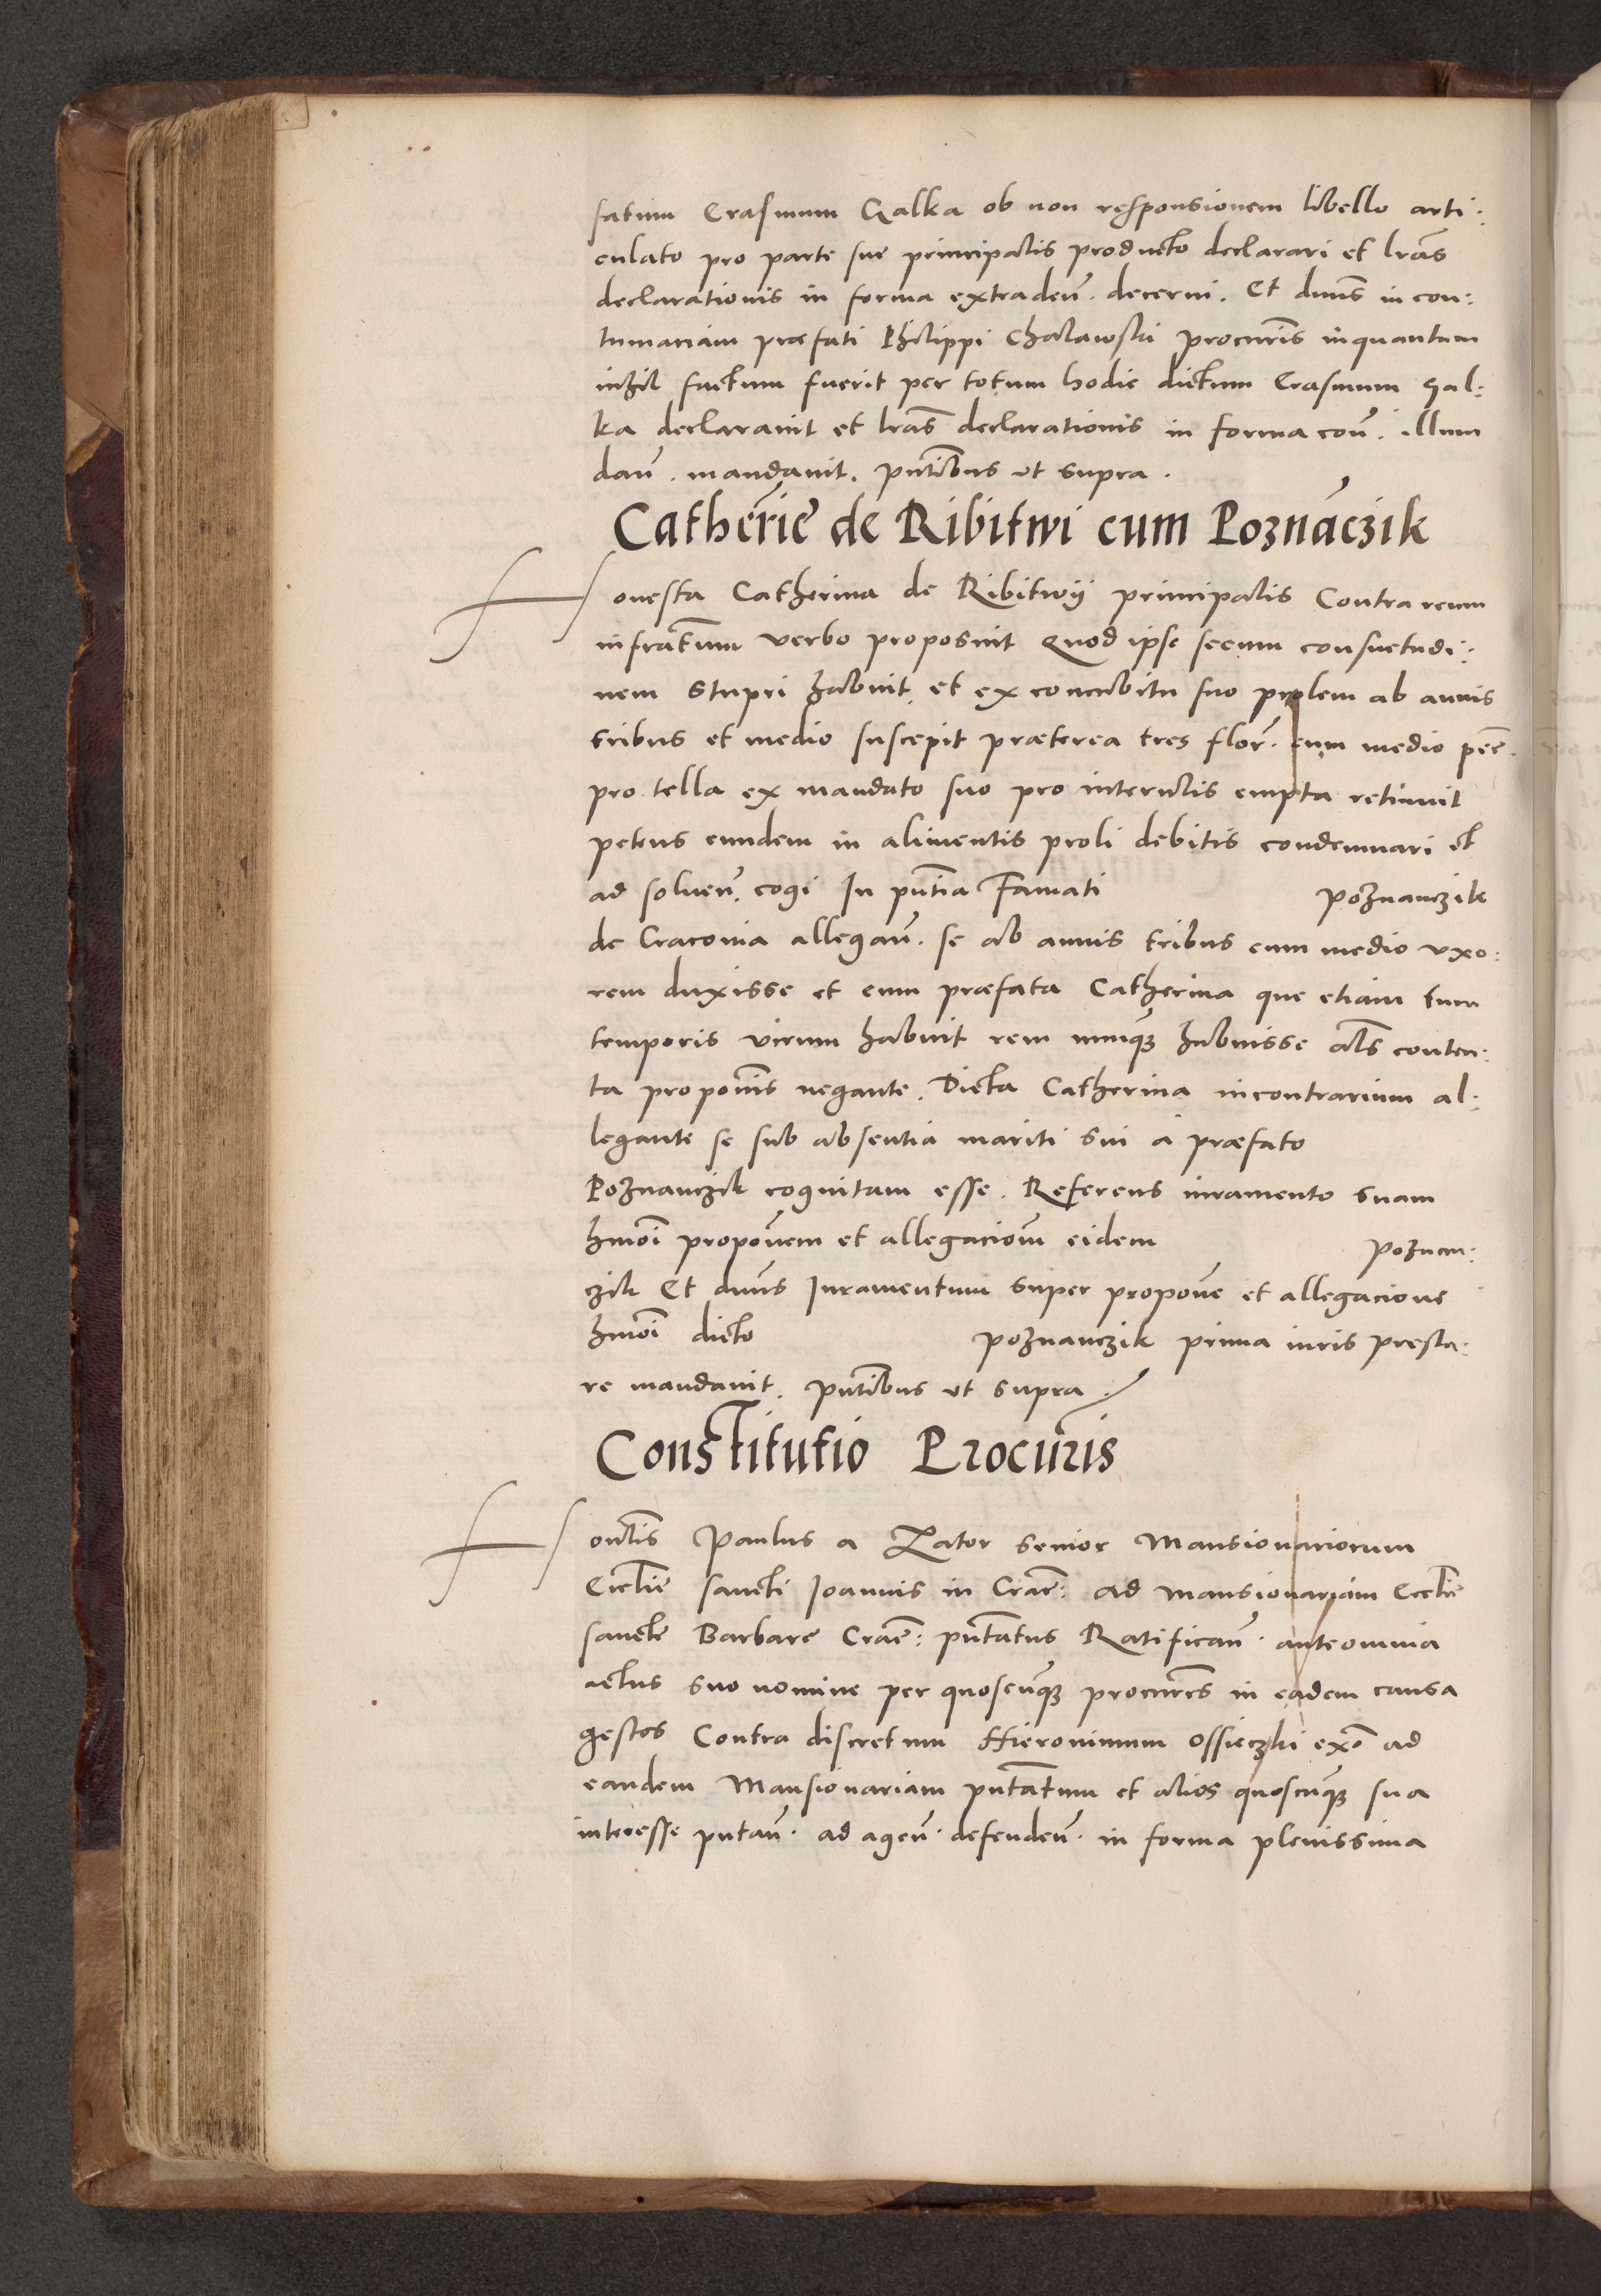 fatum Erasmum Galka ob non responsionem libello arti:
culato pro parte sue principalis producto declarari et lrãs
declarationis in forma extradeñ. decerni. Et dnus in con:
tumaciam præfati Philippi Chalawski procuris inquantum
inhil factum fuerit per totum hodie dictum Erasmum Gal:
ka declaravit et lrãs declarationis in forma coñ. illum
dañ. mandavit. pñtibus ut supra.
Catherie de Ribitwi cum Poznãczik
Honesta Catherina de Ribitwÿ principalis Contra reum
infratum verbo proposuit Quod ipse secum consuetudi:
nem stupri habuit, et ex concubitu suo prolem ab annis
tribus et medio suscepit præterea tres flor. cum medio peĉ.
pro tella ex mandato suo pro interulis empta retinuit
petens eundem in alimentis proli debitis condemnari et
ad solveñ. cogi In pñtia Famati Poznanczik
de Cracovia allegañ. se ab annis tribus cum medio uxo:
rem duxisse et cum præfata Catherina que etiam tum
temporis virum habuit rem nunqȝ habuisse als conten:
ta proponis negante. Dicta Catherina incontrarium al:
legante se sub absentia mariti sui a præfato
Poznanczik cognitam esse. Referens iuramento suam
hmoi proponem et allegacionem eidem Poznan:
czik Et dnus Iuramentum super propone et allegacione
hmoi dicto Poznanczik prima iuris presta:
re mandavit. pñtibus ut supra.
Constitutio Procuris
Honlis Paulus a Zator senior Mansionariorum
Ecclie sancti Ioannis in Crac: ad mansionariam Ecclie
sancte Barbare Crac: pñtatus Ratificañ. anteomnia
actus suo nomine per quoscunqȝ procures in eadem causa
gestos Contra discretum Hieronimum Ossieczki ex° ad
eandem Mansionariam pñtatum et alios quoscunqȝ sua
interesse putañ. ad ageñ. defendeñ. in forma plenissima